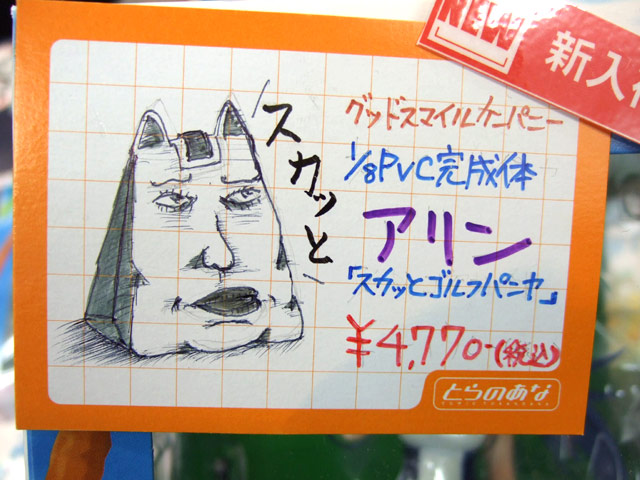 NEW
新入
スカッと
グッドスマイルカンパニー
1/8PVC完成体
アリン
「スカッとゴルフパンヤ」
¥4,770-(税込)
とらのあな